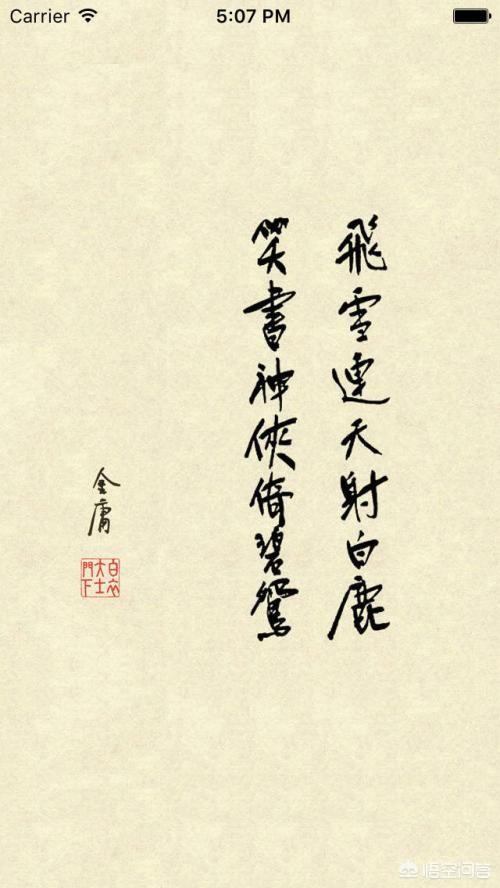 Carrier 5:07 PM
飛雪連天射白鹿
笑書神俠倚碧鴛
金庸
白衣
大士
門下
悟空问答